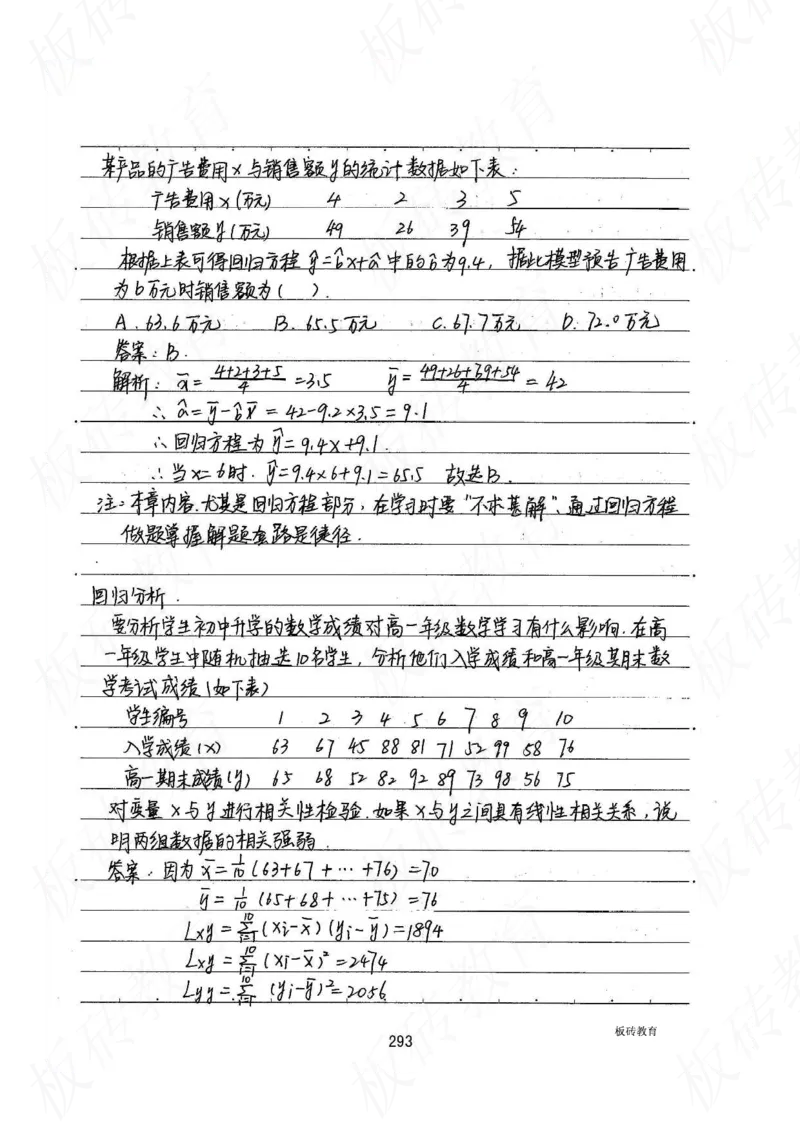 某产品的广告费用x与销售额y的统计数据如下表：
广告费用x(万元) 4 2 3 5
销售额y(万元) 49 26 39 54
根据上表可得回归方程 ŷ=b̂x+â 中的b̂为9.4，据此模型预告广告费用
为6万元时销售额为( ).
A.63.6万元 B.65.5万元 C.67.7万元 D.72.0万元
答案：B.
解析：x̄=(4+2+3+5)/4=3.5 ȳ=(49+26+39+54)/4=42
∴â=ȳ-b̂x̄=42-9.2×3.5=9.1
∴回归方程为ŷ=9.4x+9.1.
∴当x=6时.ŷ=9.4×6+9.1=65.5 故选B.
注：本章内容.尤其是回归方程部分，在学习时要“不求甚解”，通过回归方程
做题掌握解题套路是捷径.
回归分析.
要分析学生初中升学的数学成绩对高一年级数学学习有什么影响.在高
一年级学生中随机抽选10名学生，分析他们入学成绩和高一年级某期末数
学考试成绩(如下表)
学生编号 1 2 3 4 5 6 7 8 9 10
入学成绩(x) 63 67 45 88 81 71 52 99 58 76
高一期末成绩(y) 65 68 52 82 92 89 73 98 56 75
对变量x与y进行相关性检验.如果x与y之间具有线性相关关系，说
明两组数据的相关强弱.
答案.因为x̄=1/10(63+67+…+76)=70
ȳ=1/10(65+68+…+75)=76
Lxy=∑_{i=1}^{10}(xi-x̄)(yi-ȳ)=1894
Lxy=∑_{i=1}^{10}(xi-x̄)²=2474
Lyy=∑_{i=1}^{10}(yi-ȳ)²=2056
板砖教育
293